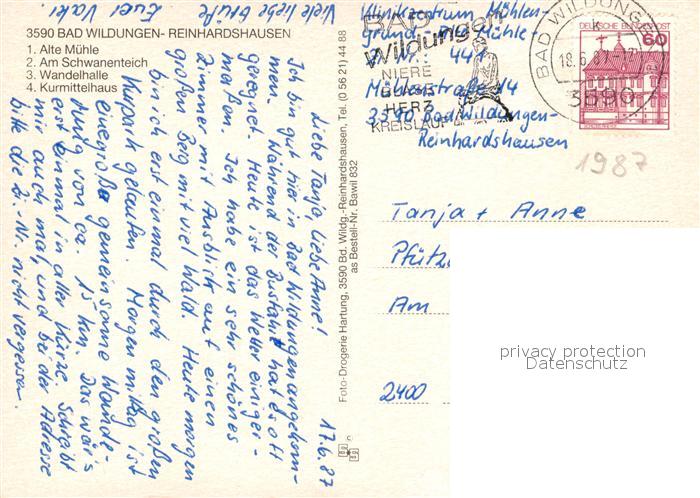 3590 BAD WILDUNGEN- REINHARDSHAUSEN
1. Alte Mühle
2. Am Schwanenteich
3. Wandelhalle
4. Kurmittelhaus
17.6.87
Liebe Tanja, liebe Anne!
Ich bin gut hier in Bad Wildungen angekom-
men. Während der Busfahrt hat es oft
geregnet. Heute ist das Wetter einiger-
maßen. Ich habe ein sehr schönes
Zimmer mit Ausblick auf einen
großen Berg mit viel Wald. Heute morgen
bin ich erst einmal durch den großen
Kurpark gelaufen. Morgen mittag ist
eine große gemeinsame Wande-
rung von ca. 15 km. Das wär's
erst einmal in aller Kürze. Schreibt
mir auch mal, und bei der Adresse
bitte die Zi-Nr. nicht vergessen.
Viele liebe Grüße
Euer Vati
Foto-Drogerie Hartung, 3590 Bd. Wildg.-Reinhardshausen, Tel. (0 56 21) 44 88
as Bestell-Nr. Bawil 832
Klinikzentrum Mühlen-
Grund - Alte Mühle
Zi. Nr.: 447
Mühlenstraße 14
3590 Bad Wildungen-
Reinhardshausen
BAD
Wildungen
NIERE
BLASE
HERZ
KREISLAUF
BAD WILDUNGEN
k
18.6.
3590
DEUTSCHE BUNDESPOST
60
1987
Tanja + Anne
Am
2400
privacy protection
Datenschutz